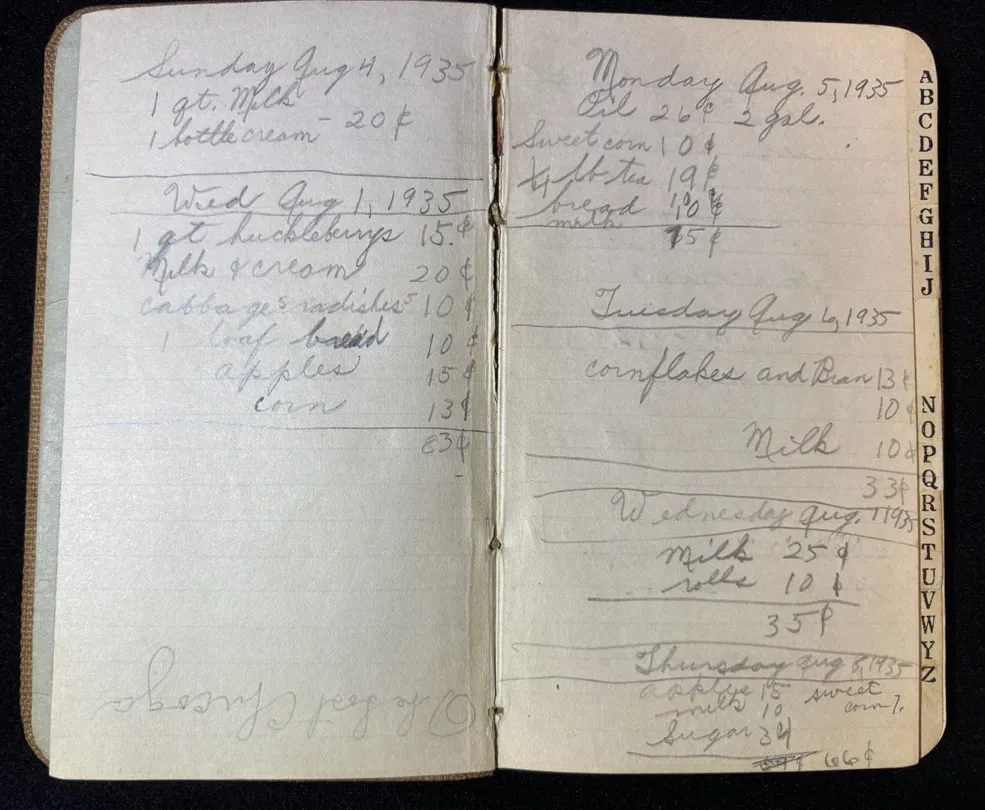 Sunday Aug 4, 1935
1 qt. Milk
1 bottle cream - 20¢
Wed Aug 1, 1935
1 qt huckleberrys 15.¢
Milk & cream 20¢
cabbage 5 radishes 5 10¢
1 loaf bread 10¢
apples 15¢
corn 13¢
83¢
Monday Aug. 5, 1935
Oil 26¢ 2 gal.
Sweet corn 10¢
¼ lb tea 19¢
bread 10¢
milk 10¢
75¢
Tuesday Aug 6, 1935
cornflakes and Bran 13¢
10¢
Milk 10¢
33¢
Wednesday Aug. 7 1935
Milk 25¢
rolls 10¢
35¢
Thursday Aug 8, 1935
apples 15 sweet
milk 10 corn 7.
Sugar 34
66¢
A
B
C
D
E
F
G
H
I
J
N
O
P
Q
R
S
T
U
V
W
Y
Z